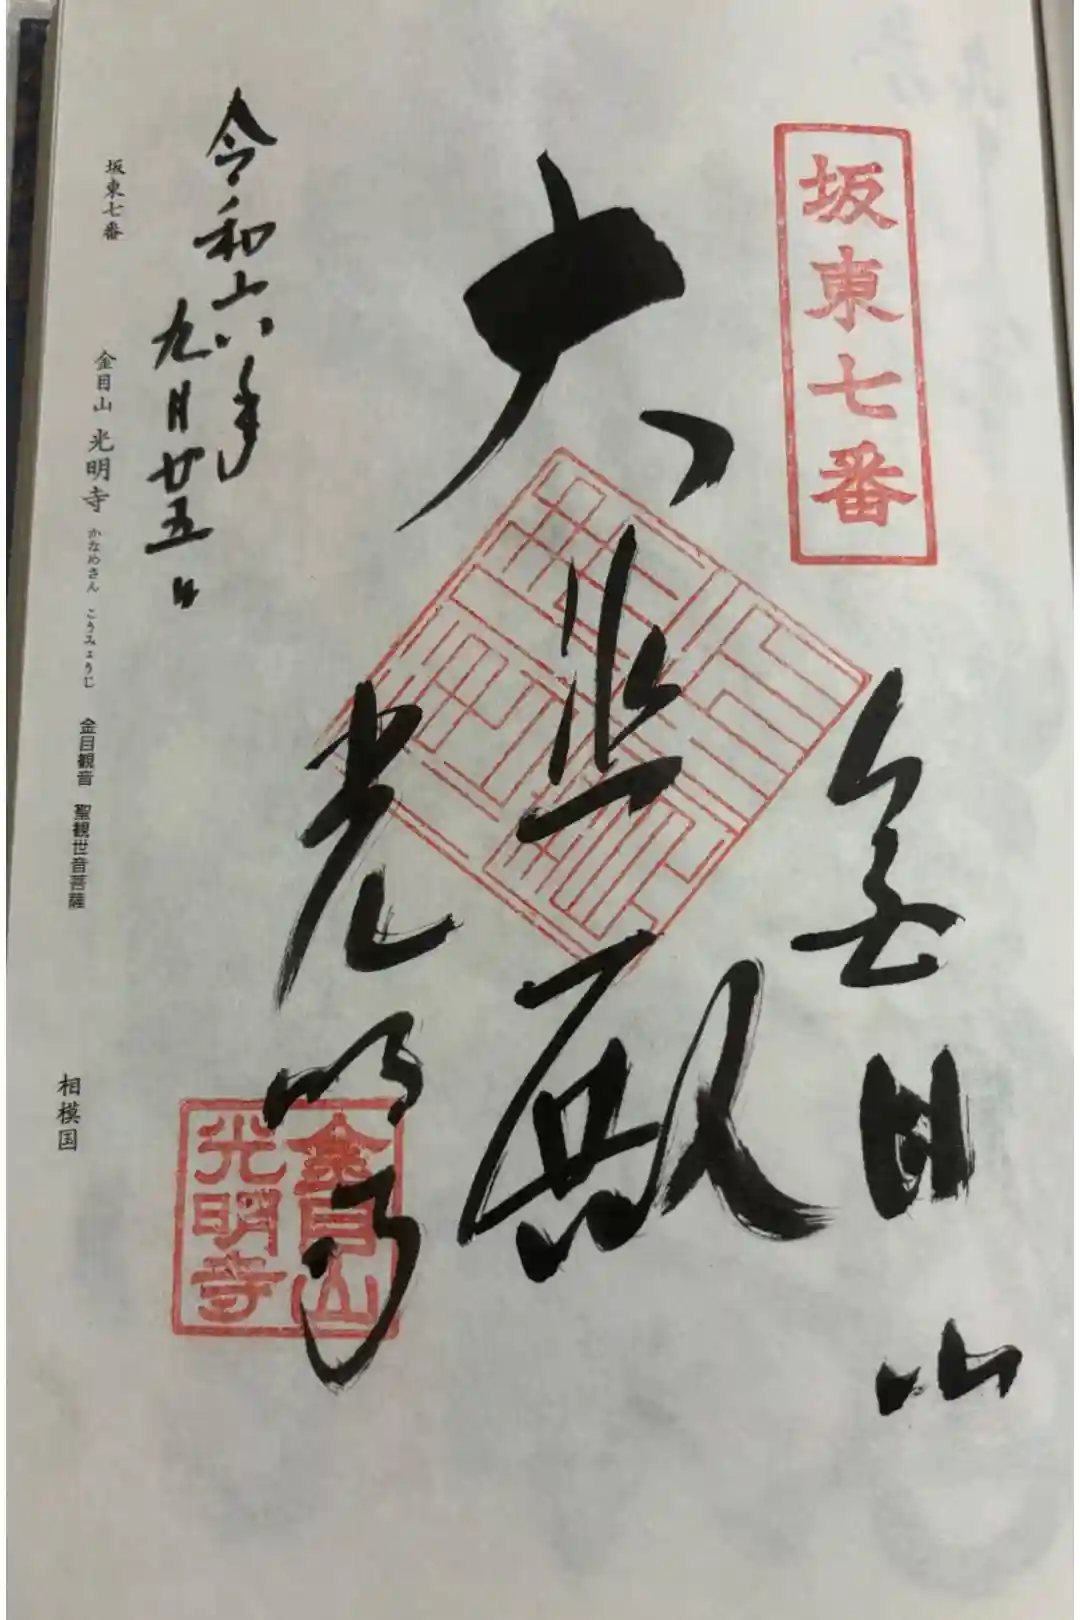 坂東七番
金目山
大悲殿
光明寺
金目山
光明寺
令和六年
九月廿五日
坂東七番
金目山 光明寺 かなめさん こうみょうじ 金目観音 聖観世音菩薩
相模国